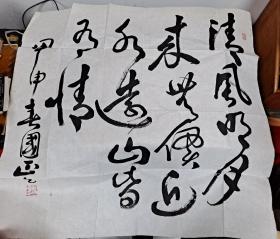 清風明月
本無價近
水遠山皆
有情
甲申春國